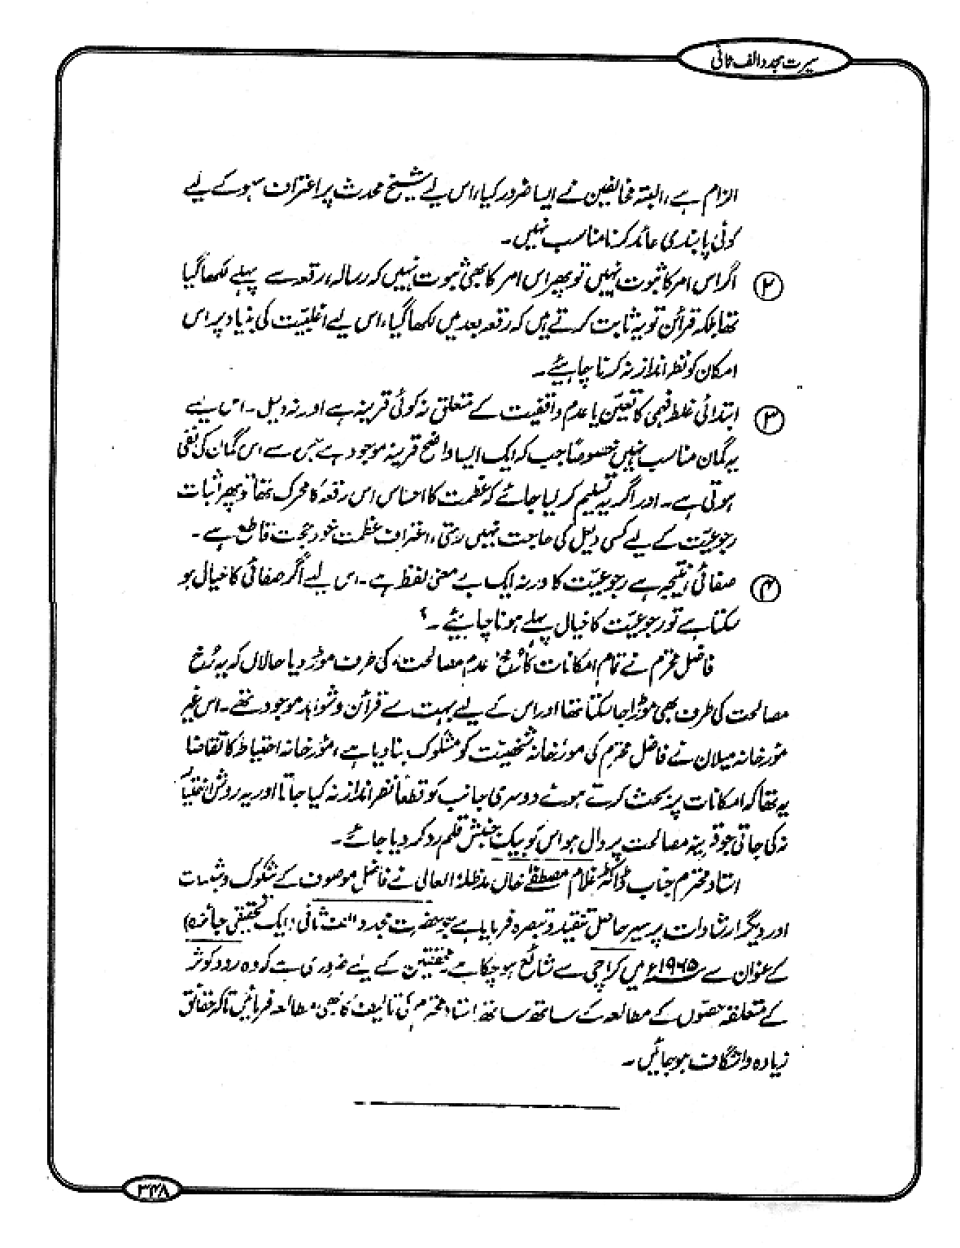 سیرت مجدد الف ثانی
الزام ہے، البتہ مخالفین نے ایسا ضرور کیا، اس لیے شیخ محدث پر اعتراف سہو کے لیے
کوئی پابندی عائد کرنا مناسب نہیں۔
② اگر اس امر کا ثبوت نہیں تو پھر اس امر کا بھی ثبوت نہیں کہ رسالہ، رقعہ سے پہلے لکھا گیا
تھا بلکہ قرائن تو یہ ثابت کرتے ہیں کہ رقعہ بعد میں لکھا گیا، اس لیے اغلبیت کی بنیاد پر اس
امکان کو نظر انداز نہ کرنا چاہیئے۔
③ ابتدائی غلط فہمی کا تعیّن یا عدم واقفیت کے متعلق نہ کوئی قرینہ ہے اور نہ دلیل۔ اس لیے
یہ گمان مناسب نہیں خصوصاً جب کہ ایک ایسا واضح قرینہ موجود ہے جس سے اس گمان کی نفی
ہوتی ہے۔ اور اگر یہ تسلیم کر لیا جائے کہ عظمت کا احساس اس رقعہ کا محرک تھا تو پھر اثبات
رجوعیّت کے لیے کسی دلیل کی حاجت نہیں رہتی، اعتراف عظمت خود حجت قاطع ہے۔
④ صفائی نتیجہ ہے رجوعیّت کا ورنہ ایک بے معنی لفظ ہے۔ اس لیے اگر صفائی کا خیال ہو
سکتا ہے تو رجوعیّت کا خیال پہلے ہونا چاہیئے۔؟
فاضل محترم نے تمام امکانات کا رُخ ’عدم مصالحت‘ کی طرف موڑ دیا حالاں کہ یہ رُخ
مصالحت کی طرف بھی موڑا جا سکتا تھا اور اس کے لیے بہت سے قرائن و شواہد موجود تھے۔ اس غیر
مؤرخانہ میلان نے فاضل محترم کی مؤرخانہ شخصیّت کو مشکوک بنا دیا ہے، مؤرخانہ احتیاط کا تقاضا
یہ تھا کہ امکانات پر بحث کرتے ہوئے دوسری جانب کو قطعاً نظر انداز نہ کیا جاتا اور یہ روش اختیار
نہ کی جاتی جو قرینہ مصالحت پر دال ہو اس کو بیک جنبش قلم رد کر دیا جائے۔
استاد محترم جناب ڈاکٹر غلام مصطفےٰ خاں مدظلہ العالی نے فاضل موصوف کے شکوک و شبہات
اور دیگر ارشادات پر سیر حاصل تنقید و تبصرہ فرمایا ہے جو حضرت مجدد الف ثانی: (ایک تحقیقی جائزہ)
کے عنوان سے ۱۹۶۵ء میں کراچی سے شائع ہو چکا ہے۔ محققین کے لیے ضروری ہے کہ وہ رود کوثر
کے متعلقہ حصّوں کے مطالعہ کے ساتھ ساتھ استاد محترم کی تالیف کا بھی مطالعہ فرمائیں تاکہ حقائق
زیادہ واشگاف ہو جائیں۔
۳۴۸